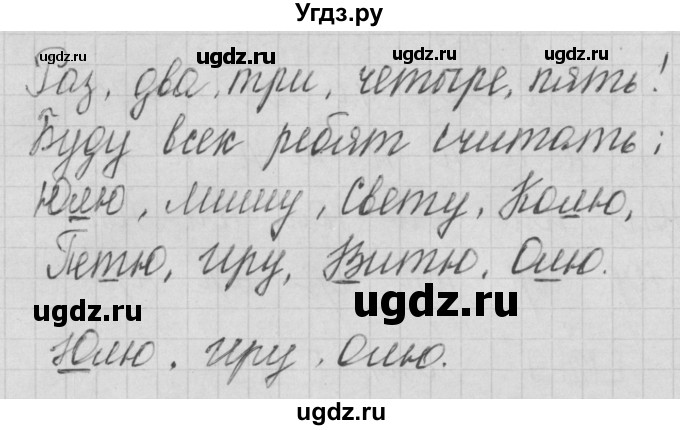 Угдз.ру
ugdz.ru ugdz.ru ugdz.ru
Раз, два, три, четыре, пять!
Буду всех ребят считать:
Юлю, Мишу, Свету, Колю,
ugdz.ru ugdz.ru
Петю, Иру, Витю, Олю.
ugdz.ru ugdz.ru
Юлю, Иру, Олю.
ugdz.ru